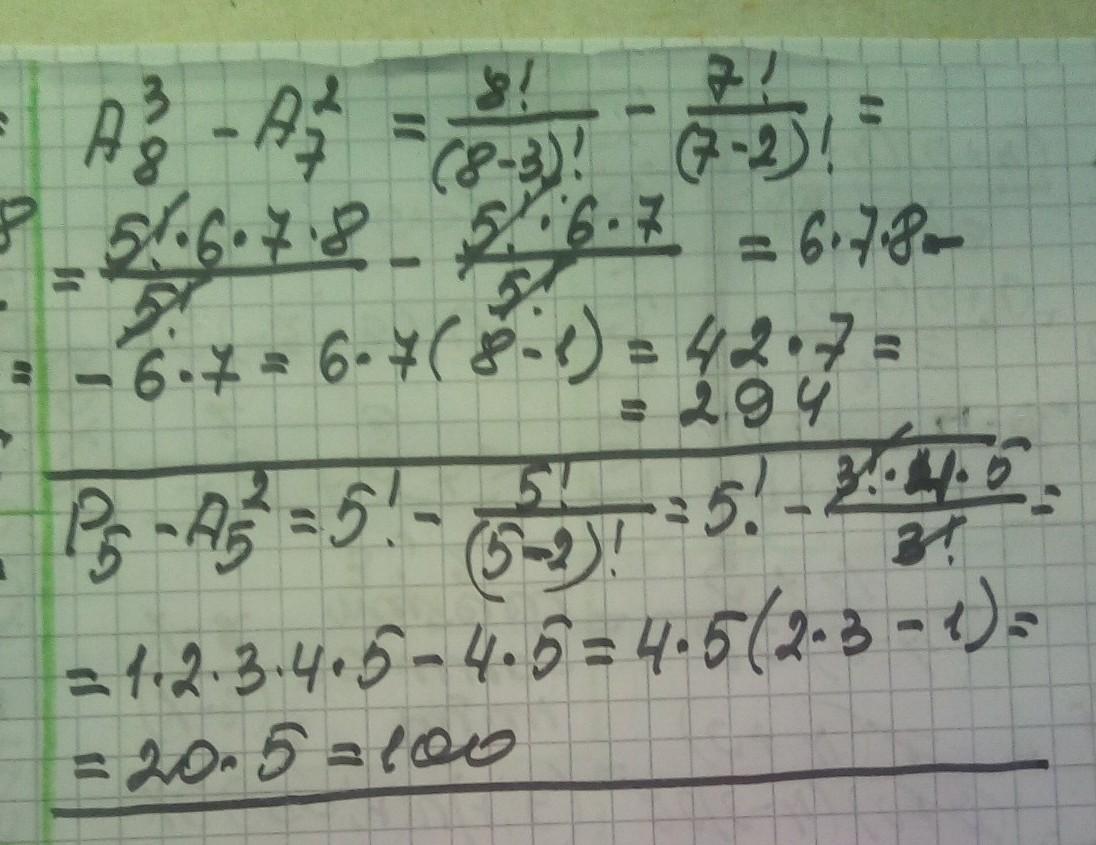 A₈³ - A₇² = 8!/(8-3)! - 7!/(7-2)! =
= 5!·6·7·8/5! - 5!·6·7/5! = 6·7·8 -
- 6·7 = 6·7(8-1) = 42·7 =
= 294
P₅ - A₅² = 5! - 5!/(5-2)! = 5! - 3!·4·5/3! =
= 1·2·3·4·5 - 4·5 = 4·5(2·3 - 1) =
= 20·5 = 100